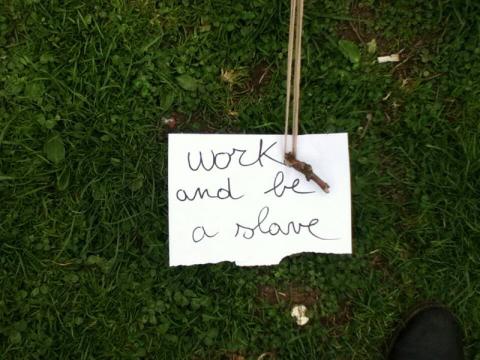 work
and be
a slave